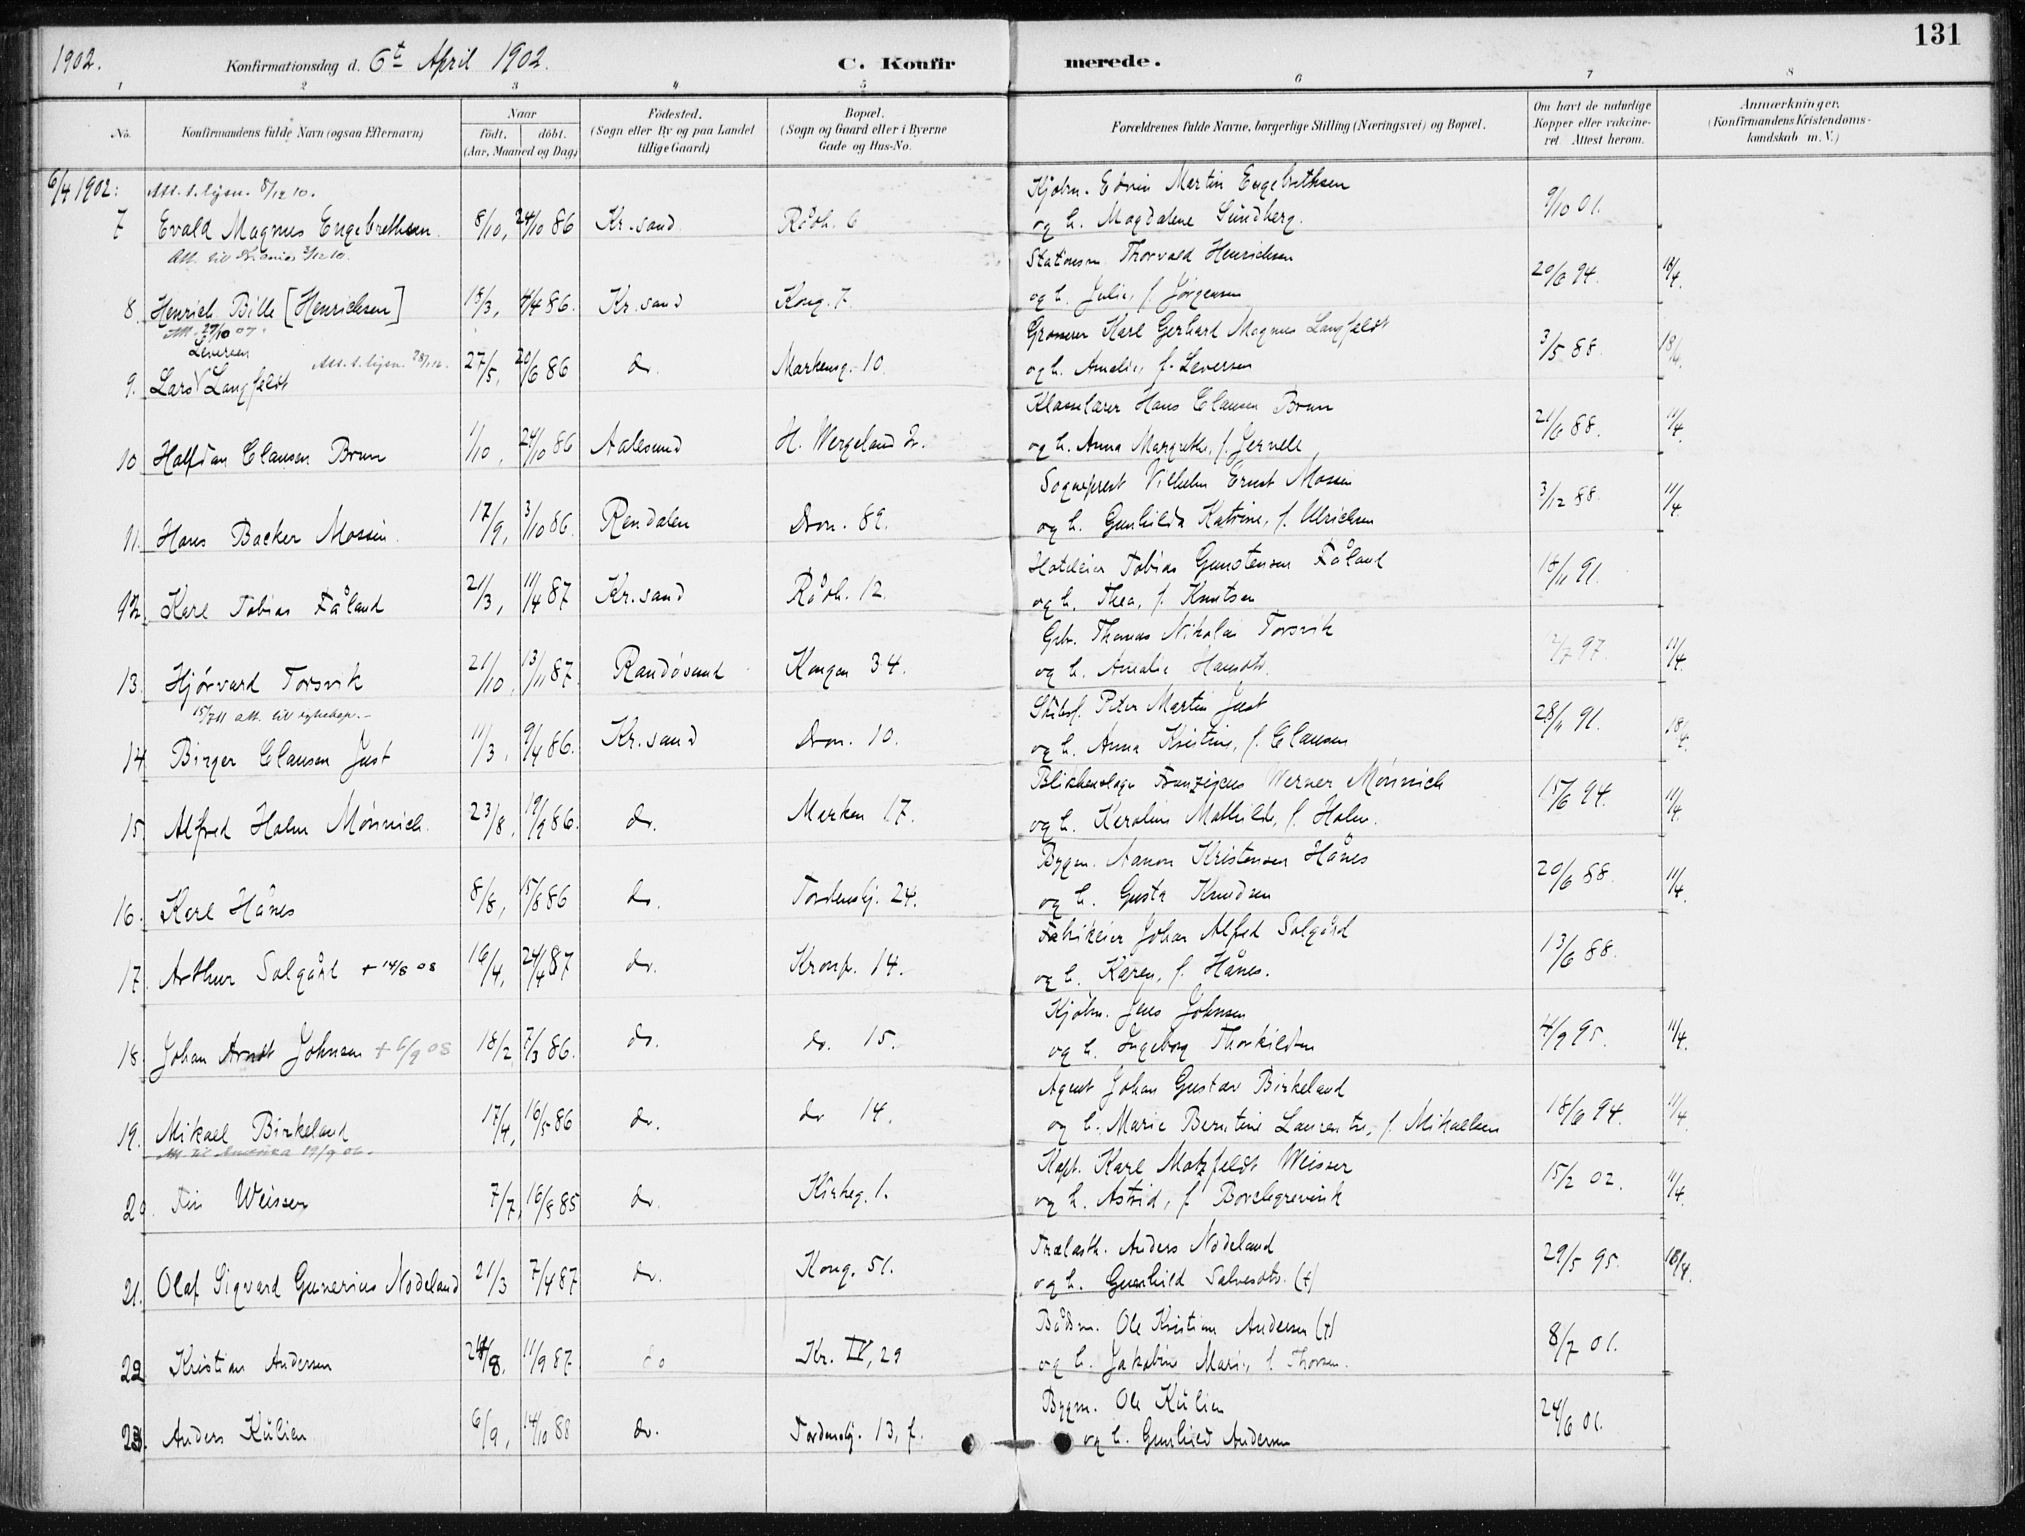 1902. Konfirmationsdag d. 6t April 1902. C. Konfirmerede. 131
1 2 3 4 5 6 7 8
No. Konfirmandens fulde Navn (ogsaa Efternavn) Naar født, døbt. (Aar, Maaned og Dag) Fødested. (Sogn eller By og paa Landet tillige Gaard) Bopæl. (Sogn og Gaard eller i Byerne Gade og Hus-No. Forældrenes fulde Navne, borgerlige Stilling (Næringsvei) og Bopæl. Om havt de naturlige Kopper eller vakcineret. Attest herom. Anmærkninger, (Konfirmandens Kristendomskundskab m. V.)
6/4 1902: Att. t. lysn. 8/12 10. Kjøbm. Edvin Martin Engebrethsen
7 Evald Magnus Engebrethsen. 8/10, 24/10 86 Kr.sand Rådh. 6 og h. Magdalene Sundberg. 9/10 01.
Att. til 3/12 10. Stationsm. Thorvald Henrichsen
8. Henrich Bille [Henrichsen] 18/3, 4/4 86. Kr.sand Kong. 7. og h. Julie, f. Jørgensen 20/6 94. 18/4.
Att. 29/10 07.
Leversen Att. t. lysn. Karl Gerhard Magnus Langfeldt
9. Lars Langfeldt 27/5, 20/6 86 do. Markensg. 10. og h. Amalie, f. Leversen 3/5 88. 18/4
Klasselærer Hans Clausen Brun
10 Halfdan Clausen Brun 1/10, 24/10 86 Aalesund H. Wergeland og h. Anna Margrethe, f. Jervell 21/6 88. 11/4.
Sogneprest Vilhelm Ernst Mossin
11. Hans Backer Mossin. 17/9, 3/10 86. Rendalen Dron. 89. og h. Gunhilda Katrine, f. Ulrichsen 3/12 88. 11/4.
Hoteleier Tobias Gunstensen Fåland
12. Karl Tobias Fåland 21/3, 11/4 87 Kr.sand Rådh. 12. og h. Thea, f. Knutsen 91.
Thomas Nikolai Torsvik
13. Hjørvard Torsvik 21/10. 13/11 87. Randøsund Kongen 34. og h. Amalie Hansdtr. 97. 11/4.
15/7 11 att. til Skibsf. Peter Martin Just
14 Birger Clausen Just 11/3, 9/4 86. Kr.sand Dron. 10. og h. Anna Kristine, f. Clausen 28/11 91. 18/4.
Blikkenslager Werner Mönnich
15. Alfred Holm Mönnich. 23/8, 19/9 86. do. Marken 17. og h. Karoline Mathilde, f. Holm. 15/6 94. 11/4
Bygm. Aanon Kristensen Hånes
16. Karl Hånes 8/8, 15/8 86 do. Tordenskj. 24. og h. Gusta Knudsen 20/6 88. 11/4.
Fabrikeier Johan Alfred Solgård
17. Arthur Solgård + 14/8 08 16/4, 24/4 87 do. Kronp. 14. og h. Karen, f. Hånes. 13/6 88.
Kjøbm. Jens Johnsen
18. Johan Arndt Johnsen + 6/9 08 18/2, 7/3 86. do. do. 15. og h. Ingeborg Thorkildsen 4/9 95. 11/4.
Agent Johan Gustav Birkeland
19. Mikael Birkeland 17/4, 16/5 86 do. do 14. og h. Marie Berntine Laurentse, f. Mikaelsen 18/6 94. 11/4.
Att. til Amerika 19/9 06. Kapt. Karl Motzfeldt Weisser
20. Weisser 7/7, 16/8 85 do. Kirkeg. 1. og h. Astrid, f. Borchgrevink 15/2 02. 11/4.
Trælasth. Anders Nodeland
21. Olaf Sigvard Gunerius Nodeland 21/3 7/4 87. do. Kong. 51. og h. Gunhild Salvesdtr. (†) 29/5 95. 18/4.
Bådsm. Ole Kristian Andersen (†)
22 Kristian Andersen 24/8. 11/9 87. do Kr. IV, 29 og h. Jakobine Marie, f. Thorsen. 8/7 01.
Bygm. Ole Kulien
23. Anders Kulien 6/9, 14/10 88 do. Tordenskj. 13, f. og h. Gunhild Andersen 24/6 01.